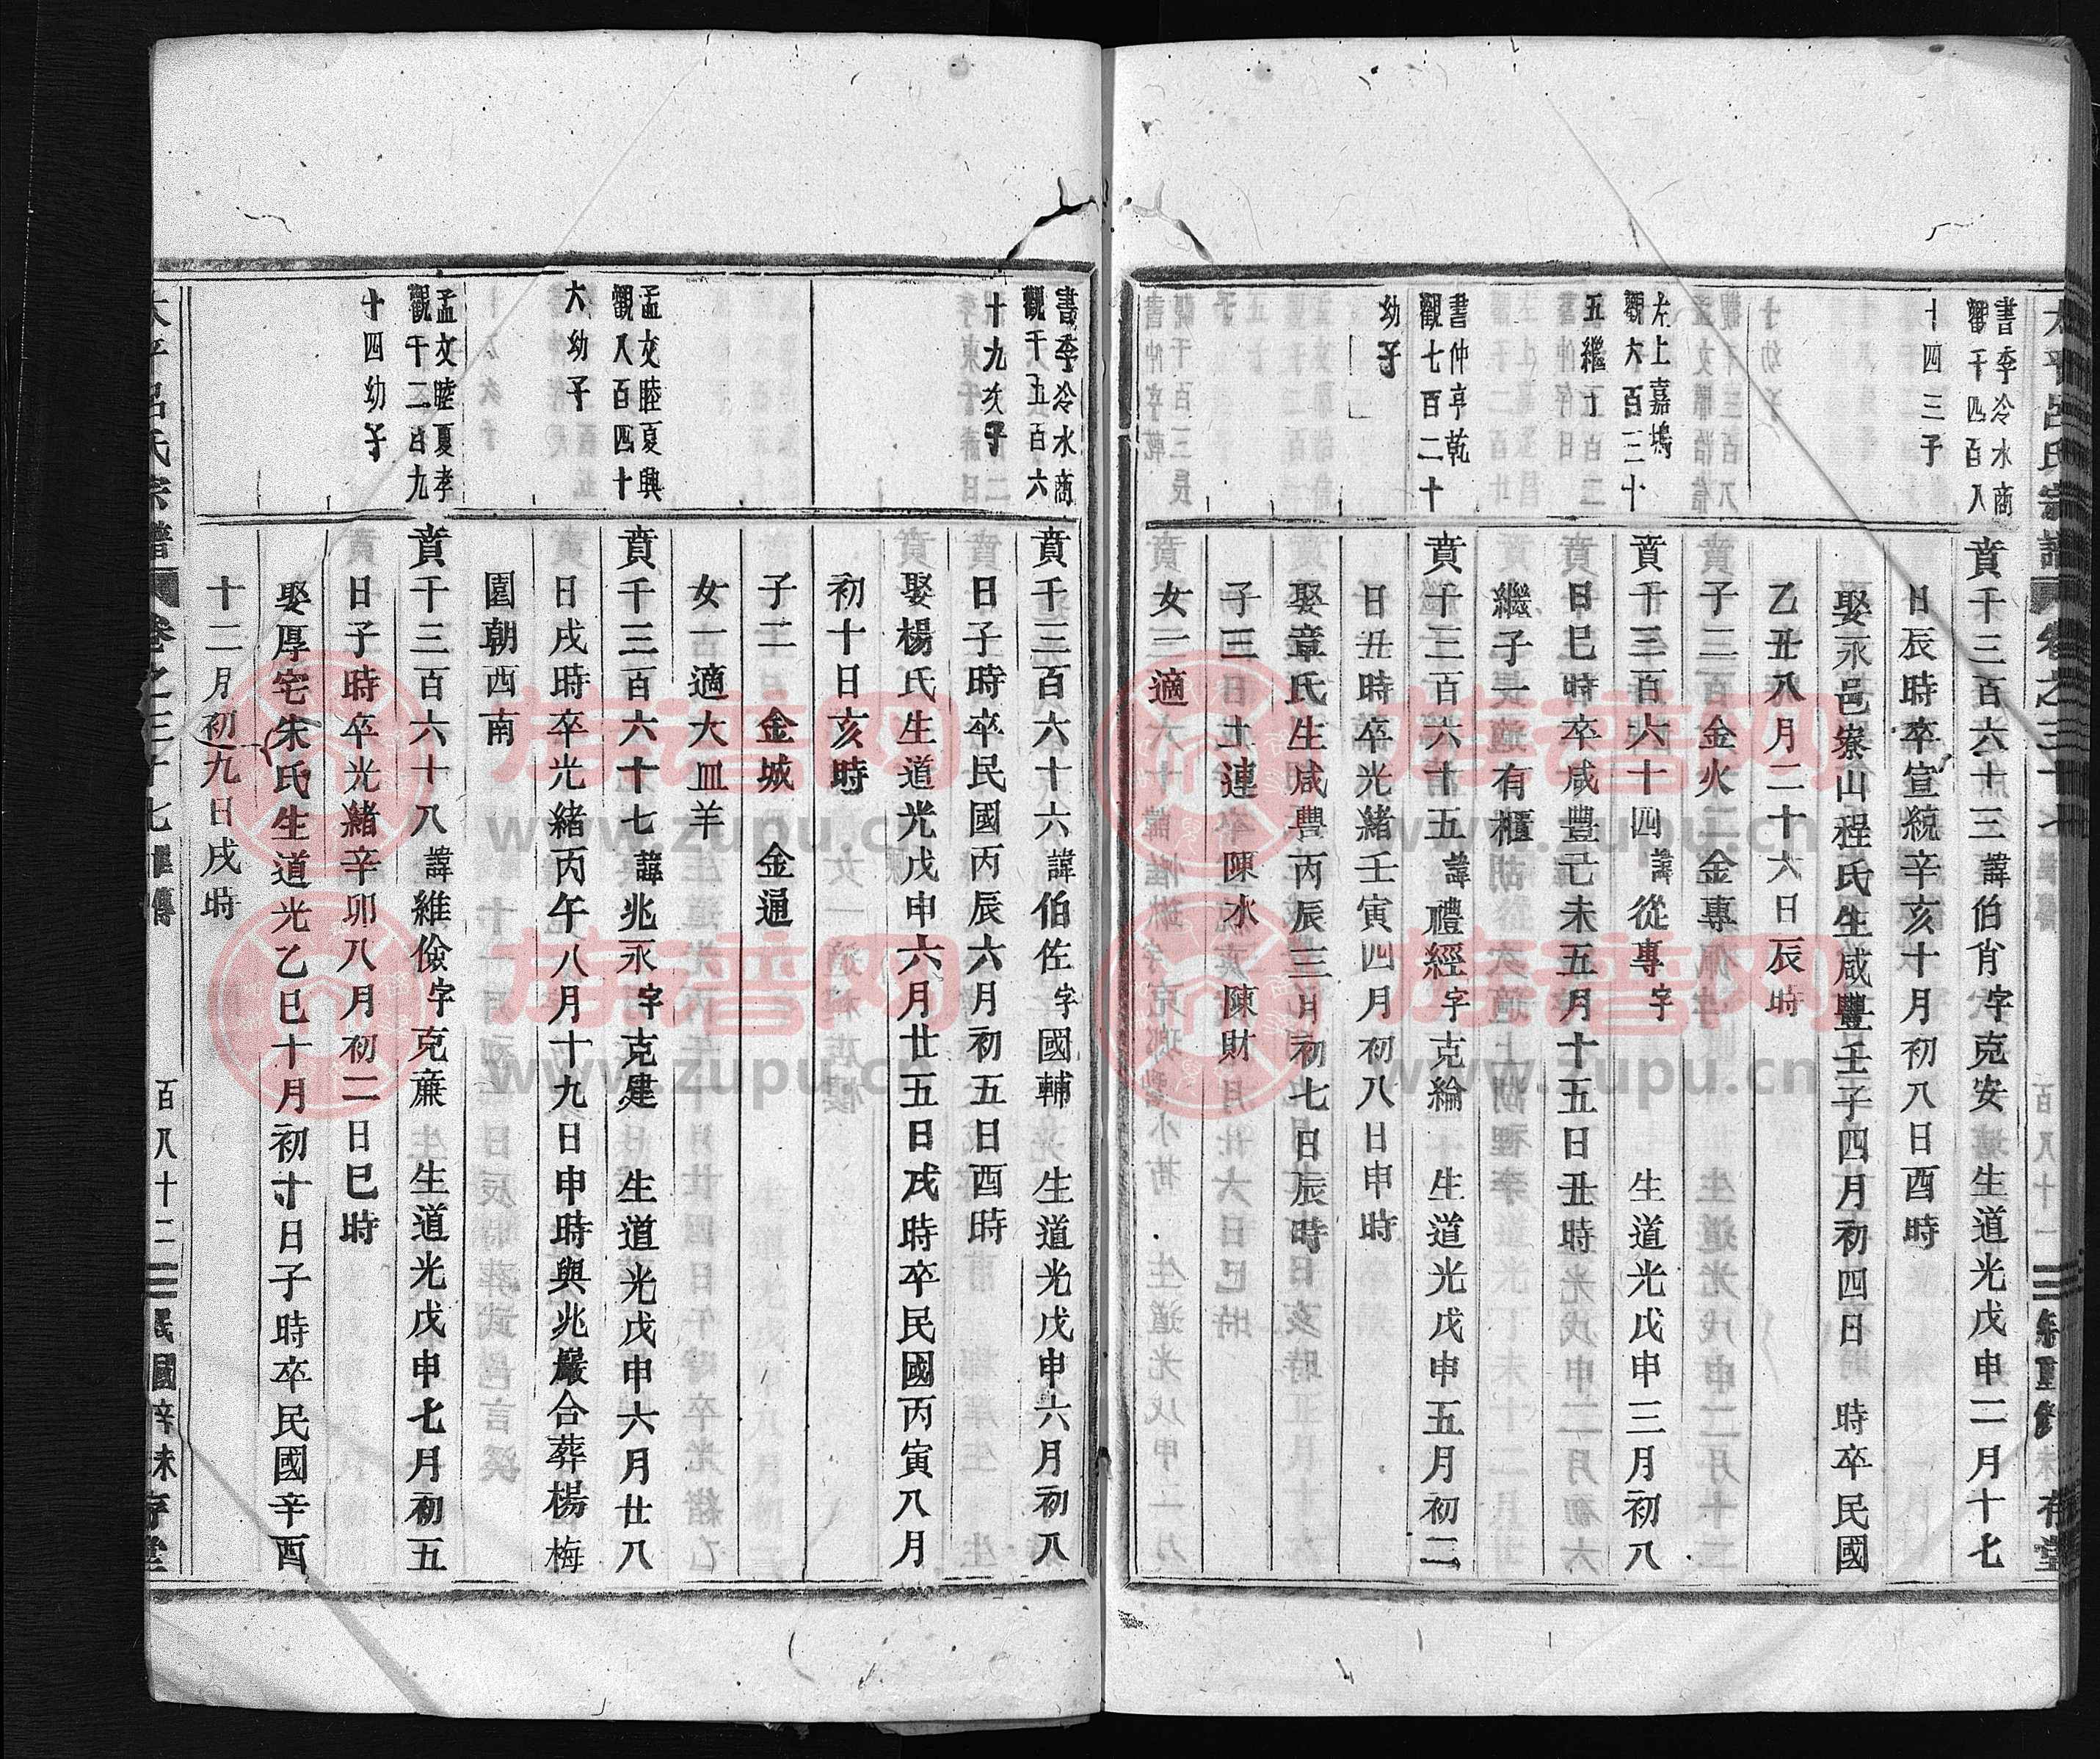 太平呂氏宗譜 卷之三十七 百八十一 重修 存堂
書季冷水商
觀千四百八
十四三子
賁千三百六十三諱伯肖字克安 生道光戊申二月十七
日辰時卒宣統辛亥十月初八日酉時
娶永邑寮山程氏生咸豐壬子四月初四日 時卒民國
乙丑八月二十六日辰時
子二 金火 金專
左上嘉塢
觀六百三十
五繼子
賁千三百六十四諱從專字 生道光戊申三月初八
日巳時卒咸豐己未五月十五日丑時
繼子一 有櫃
書仲亨乾
觀七百二十
幼子
賁千三百六十五諱禮經字克綸 生道光戊申五月初二
日丑時卒光緒壬寅四月初八日申時
娶章氏生咸豐丙辰三月初七日辰時
子三 土連 陳水 陳財
女三 適
書季冷水商
觀千五百六
十九次子
賁千三百六十六諱伯佐字國輔 生道光戊申六月初八
日子時卒民國丙辰六月初五日酉時
娶楊氏生道光戊申六月廿五日戌時卒民國丙寅八月
初十日亥時
子二 金城 金通
女一適大皿羊
孟文睦夏興
觀八百四十
六幼子
賁千三百六十七諱兆永字克建 生道光戊申六月廿八
日戌時卒光緒丙午八月十九日申時與兆嚴合葬楊梅
園朝西南
孟文睦夏孝
觀千二百九
十四幼子
賁千三百六十八諱維儉字克廉 生道光戊申七月初五
日子時卒光緒辛卯八月初二日巳時
娶厚宅朱氏生道光乙巳十月初十日子時卒民國辛酉
十二月初九日戌時
太平呂氏宗譜 卷之三十七 世傳 百八十二 民國辛未 存堂
族譜网
www.zupu.cn
族譜网
www.zupu.cn
族譜网
www.zupu.cn
族譜网
www.zupu.cn